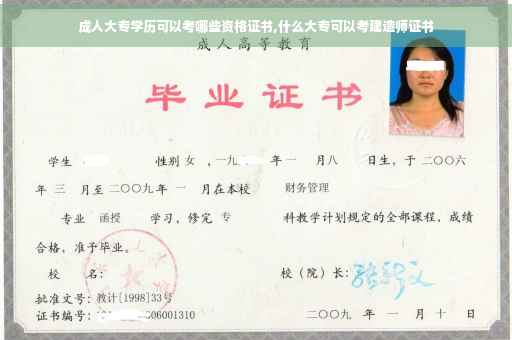 成人大专学历可以考哪些资格证书,什么大专可以考建造师证书
成人高等教育
毕业证书
学生 性别 女 ，一九 年 一 月 八 日生，于 二〇〇六
年 三 月至 二〇〇九 年 一 月在本校 财务管理
专业 函授 学习，修完 专 科教学计划规定的全部课程，成绩
合格，准予毕业。
校 名： 校（院）长：
批准文号：教计[1998]33号
证书编号： 6006001310 二〇〇九 年 一 月 十 日